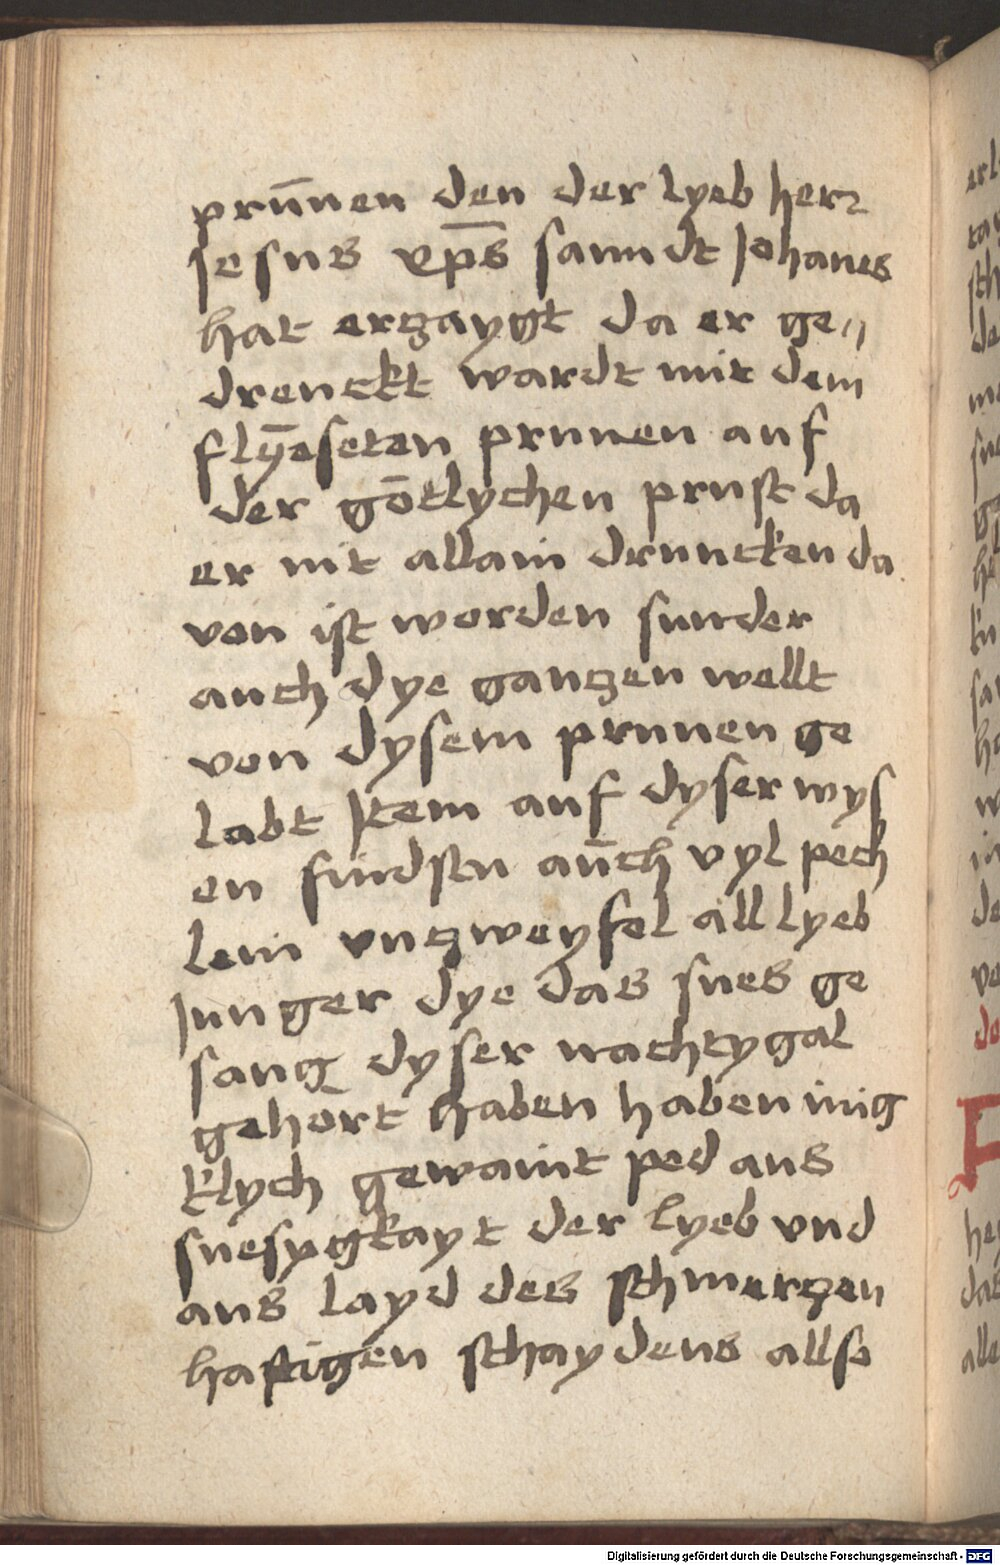 prun̄nen den der lyeb herꝛ
Jesus xp̄s sanndt Johanes
hat erzaygt da er ge„
drenckt wardt mit dem
flȳesetten prunen auf
der gōtlychen prust da
er nit allain druncken da
von ist worden sunder
auch dye gantzen wellt
von dysem prunen ge
labt Jtem auf dyser wys
en findstu au̅ch vyl pech
lein vnzweyfel all lyeb
Junger dye das sues ge
sang dyser nachtygal
gehort haben haben inig
klych gewaint ped aus
suesygkayt der lyeb vnd
aus layd des schmerzen
haftigen schaydens allso
Digitalisierung gefördert durch die Deutsche Forschungsgemeinschaft - DFG